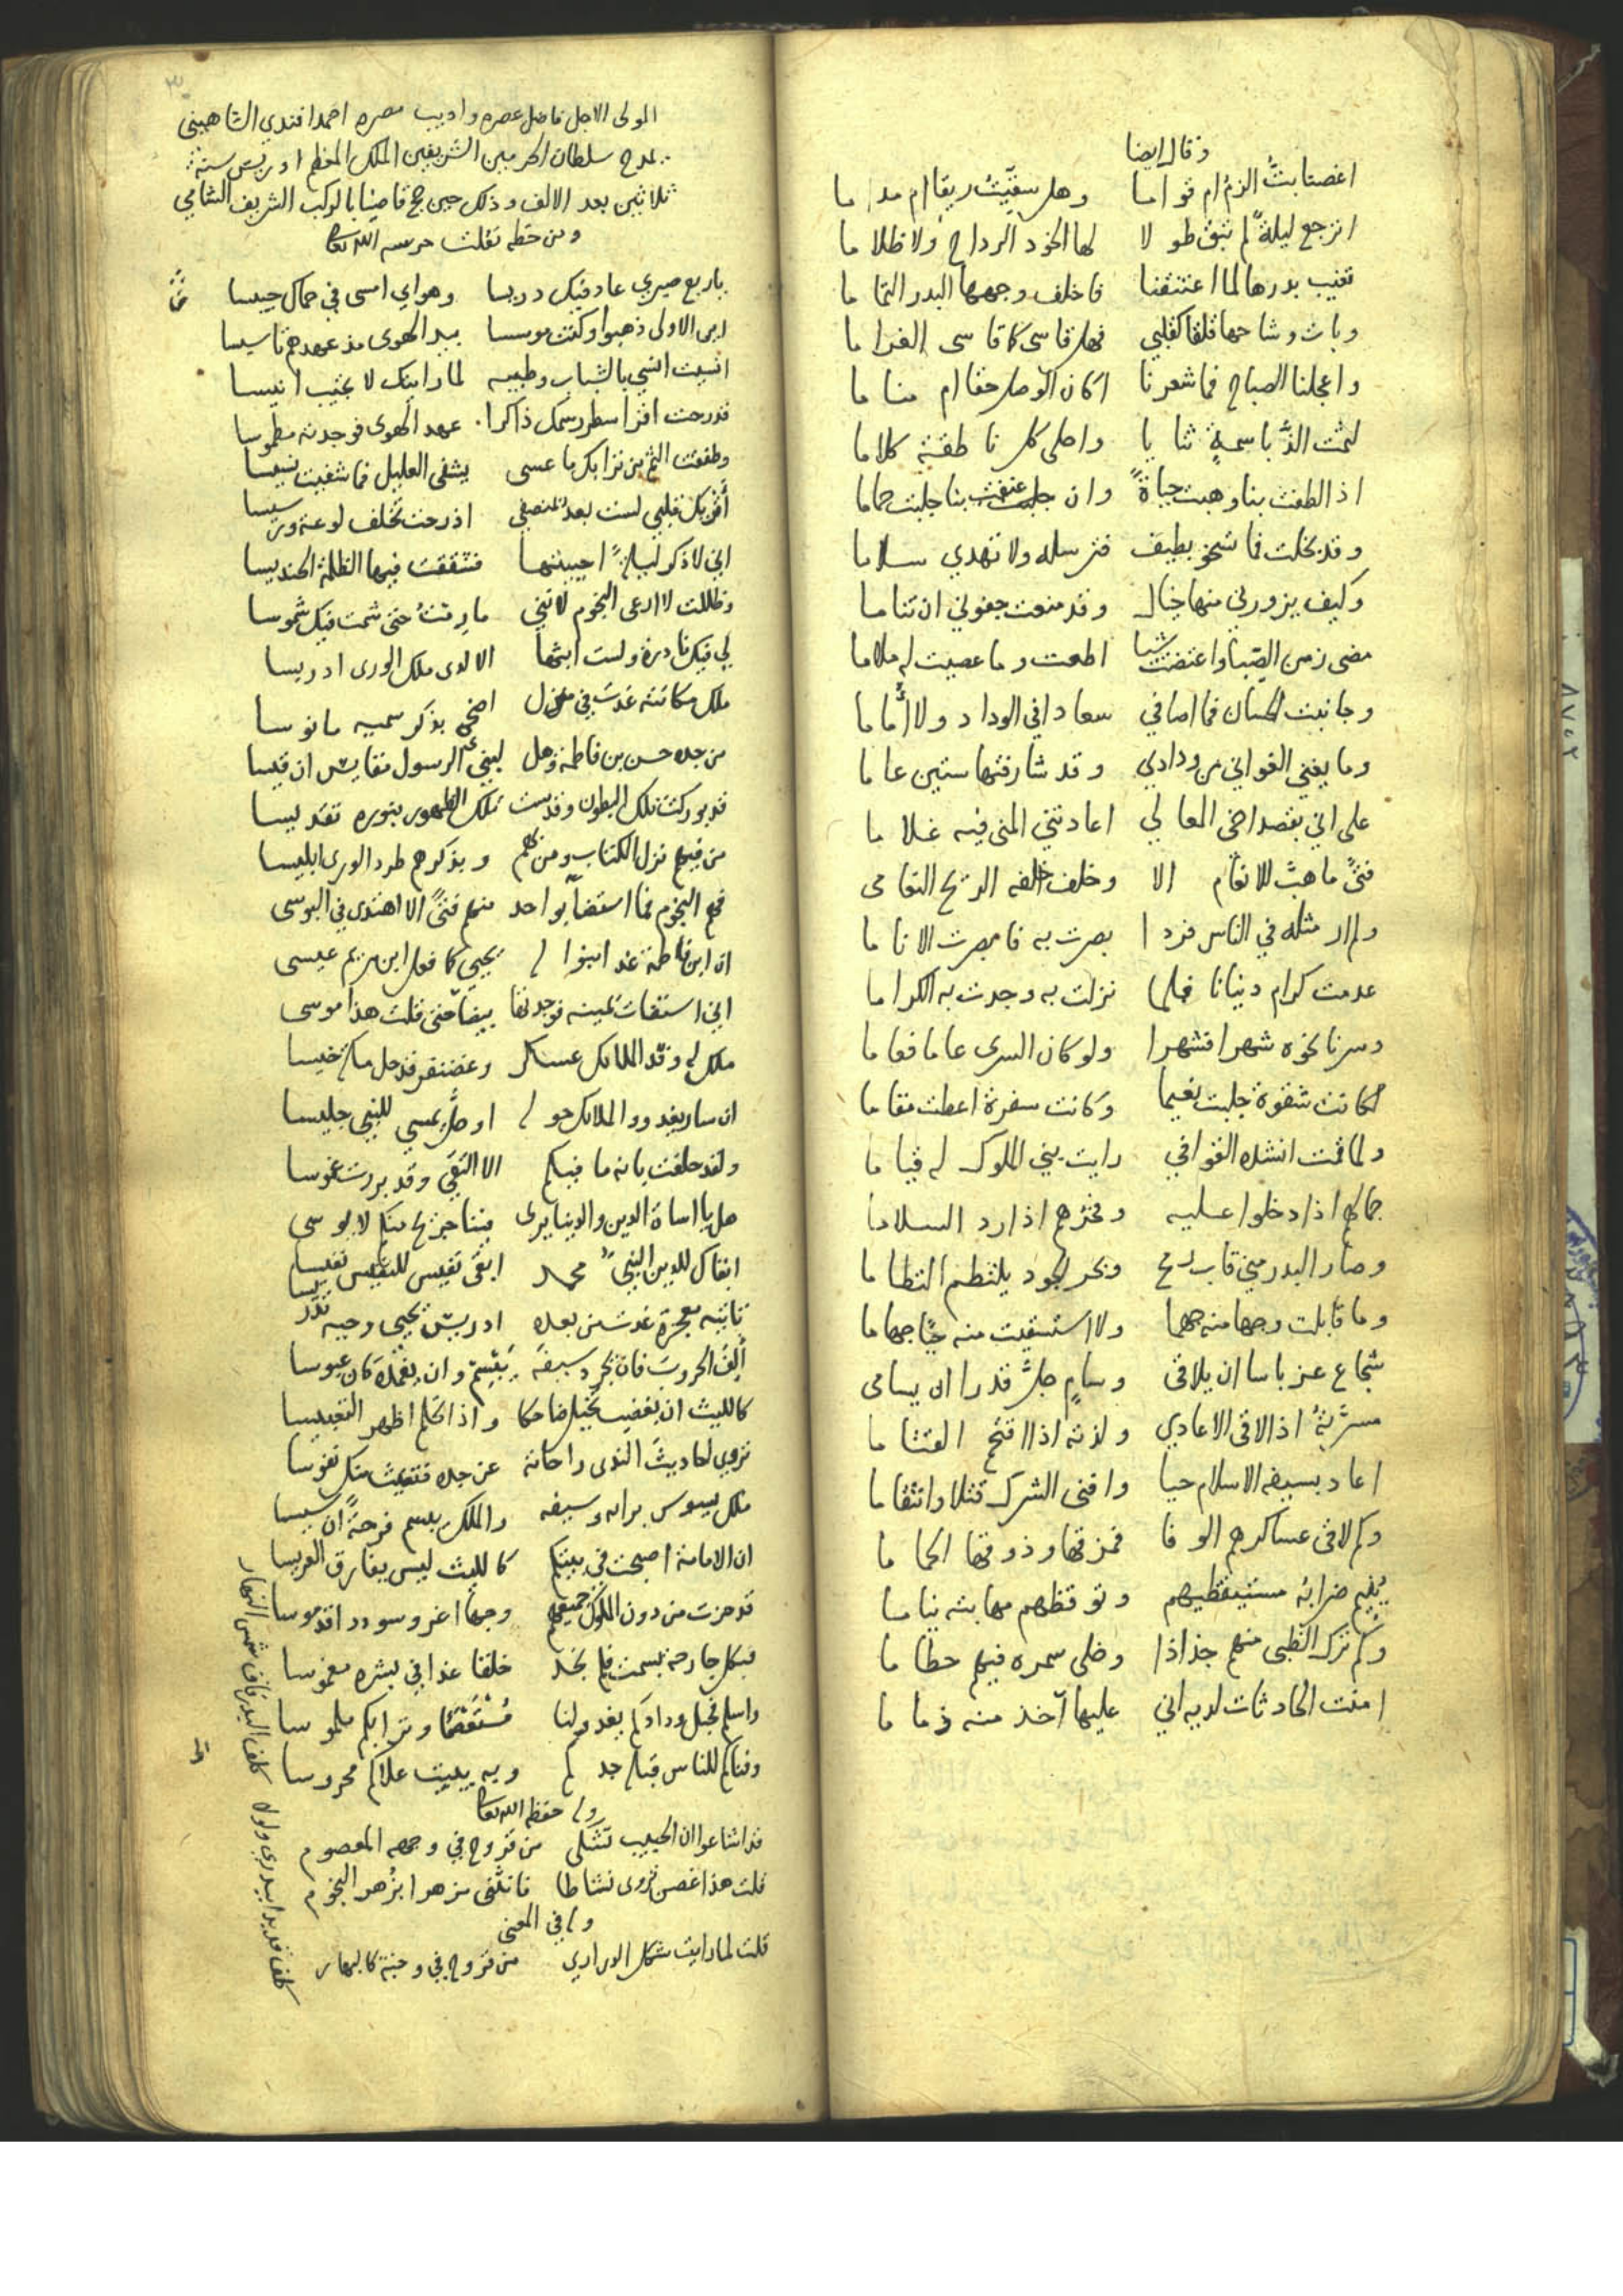 وقال ايضا
اغصنا بتُّ الزم ام قواما وهل سقّيتُ ريقا ام مداما
اترجع ليلةٌ لم تبق طولا لها الخود الرداح ولا ظلاما
تغيب بدرها لما اعتنقنا فاخلف وجهها البدر التماما
وبات وشاحها قلقا كقلبي فهل قاسى كما قاسى الغراما
واعجلنا الصباح فما شعرنا اكان الوصل حقا ام مناما
لثمت الذّ باسمةٍ ثنايا واحلى كل ناطقة كلاما
اذا لطفت بنا وهبت حياةً وان عنفت بنا جلبت حماما
وقد بخلت فما تسخو بطيف فترسله ولا تهدي سلاما
وكيف يزورني منها خيال وقد منعت جفوني ان تناما
مضى زمن الصّبا واعتضت شيبا اطعت وما عصيت له ملاما
وجانبت الحسان فما اصافي سعادا في الوداد ولا أُماما
وما يغني الغواني من ودادي وقد شارفتها ستين عاما
على اني بقصد اخي المعالي اعادتني المنى فيه غلاما
فتىً ما هبّ للانعام الا وخلف خلفه الريح النعامى
ولم ار مثله في الناس فردا بصرت به فابصرت الاناما
عدمت كرام دنيانا فلما نزلت به وجدت به الكراما
وسرنا نحوه شهرا فشهرا ولو كان السرى عاما فعاما
لكانت شقوة جلبت نعيما وكانت سفرة اعطت مقاما
ولما قمت انشده القوافي رايت بني الملوك له قياما
جمالهم اذا دخلوا عليه وفخرهم اذا رد السلاما
وصار البدر مني قاب رمح وبحر الجود يلتطم التطاما
وما قابلت وجها منه جهما ولا استسقيت منه حيًا جهاما
شجاع عز باسا ان يلاقى وسامٍ جلّ قدرا ان يسامى
مسرّته اذا لاقى الاعادي ولذته اذا اقتحم القتاما
اعاد بسيفه الاسلام حيا وافنى الشرك قتلا وانتقاما
وكم لاقى عساكرهم الوفا فمزقها وذوقها الحماما
يُنيم ضرابه مستيقظيهم وتوقظهم مهابته نياما
وكم ترك الظبى منهم جذاذا وخلى سمره فيهم حطاما
امنت الحادثات لديه اني عليها آخذ منه ذماما
المولى الاجل فاضل عصره واديب مصره احمد افندي الشاهيني
يمدح سلطان الحرمين الشريفين الملك المعظم ادريس سنة
ثلاثين بعد الالف وذلك حين حج قاضيا بالركب الشريف الشامي
ومن خطه نقلت حرسه الله تعالى
يا ربع صبري عاد فيك دريسا وهواي امسى في حماك حبيسا
اين الاولى ذهبوا وكنت موسسا بيد الهوى مذ عهدهم تاسيسا
انسيت انسي بالشباب وطيبه لما رايتك لا تجيب انيسا
قد رحت اقرا سطر رسمك ذاكرا عهد الهوى فوجدته مطموسا
وطفقت الثم من ترابك ما عسى يشفى العليل فما شفيت نسيسا
أقريك قلبي لست بعد بمنصفي اذ رحت تخلف لوعة ورسيسا
اني لاذكر ليلةً احييتها فشققت فيها الظلمة الحنديسا
وظللت لا ارعى النجوم لانني ما رمتُ حتى شمت فيك شموسا
لي فيك نادرة ولست ابثها الا لدى ملك الورى ادريسا
ملك مكانته غدت في منزل اضحى بذكر سميه مانوسا
من جده حسن بن فاطمة وهل لبني الرسول مقايس ان قيسا
قد بوركت تلك البطون وقدست تلك الظهور بنوره تقديسا
من فيهم نزل الكتاب ومن لهم وبذكرهم طرد الورى ابليسا
فهم النجوم فما استضا بواحد منهم فتىً الا اهتدى في البوسى
ان ابن فاطمة غدا منوا له يحيي كما فعل ابن مريم عيسى
اني استفات يمينه فوجدتها بيضا حتى قلت هذا موسى
ملك له وفد الملائك عساكر وغضنفر قد حل مكة خيسا
ان سار يغدو والملائك حوله او حلّ يمسي للنبي جليسا
ولقد حلفت بانه ما فيكم الا التقي وقد بررت غموسا
هل يا اساة الدين والدنيا يرى بيننا جريح منكم لا يوسى
ابقاك للدين النبيُّ محمد ابقى نفيس للنفيس نفيسا
تاتيه معجزة غدت من بعده ادريس يحيي وحيه تدريسا
أَلِفَ الحروب فان يجرد سيفه يبسم وان يغمده كان عبوسا
كالليث ان يغضب تخيل ضاحكا واذا تحلم اظهر التعبيسا
تروي احاديث الندى راحاته عن جده فتغيث منك نفوسا
ملك يسوس برايه وسيفه والملك يبسم فرحةً ان سيسا
ان الامامة اصبحت في بيتكم كالليث ليس يفارق العريسا
قد حزت من دون الملوك جميعهم وجها اغر وسوددا قدموسا
فبكل جارحة بسمت فلم نجد خلقا غدا في بشره مغموسا
واسلم فحبل ودادكم يغدو لنا مُسْتَعْصَمًا وترابكم ملموسا
وفناكم للناس قبلة جدكم وبه يبيت علاكم محروسا
وله حفظه الله تعالى
قد اشاعوا ان الحبيب تشكى من قروح في وجهه المعصوم
قلت هذا غصن تروى نشاطا فاتقى مزهرا بزُهر النجوم
وله في المعنى
قلت لما رايت شكل الدراري من قروح في وجنة كالبهار
كلف قد بدا ببدري ولولا كلف البدر فاق شمس النهار